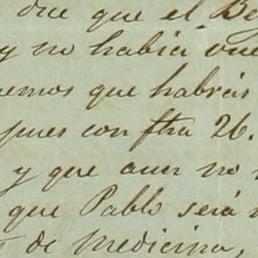 dice que el Be
y no habia vue
uemos que habrás
spues con fha 26.
y que aun no
que Pablo será
de Medicina,